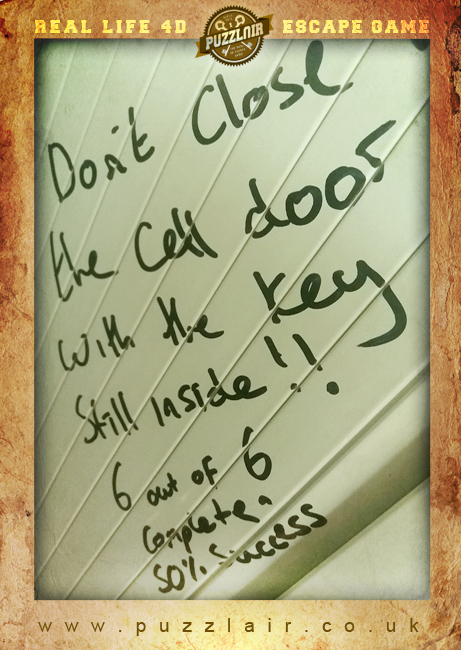 REAL LIFE 4D PUZZLAIR ESCAPE GAME
Don't Close
the Cell door
with the key
Still Inside!!
6 out of 6
Complete,
50% Success
www.puzzlair.co.uk